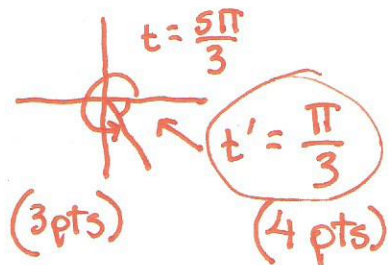 t = 5π/3
t' = π/3
(3pts)
(4 pts)